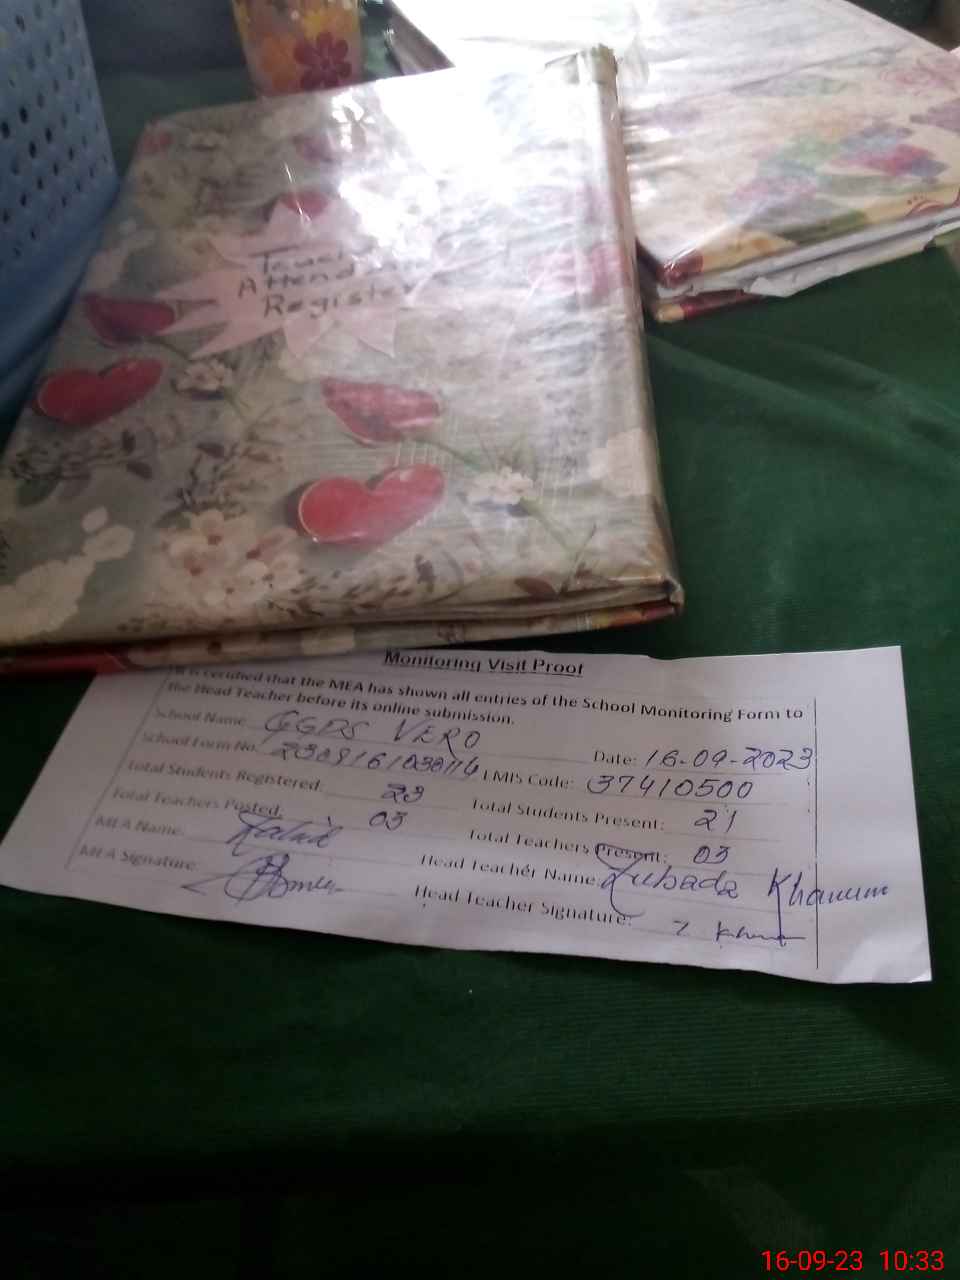 Attend
Register
Monitoring Visit Proof
It is certified that the MEA has shown all entries of the School Monitoring Form to
the Head Teacher before its online submission.
School Name: GGPS VERO
Date: 16-09-2023
School Form No.
EMIS Code: 37410500
Total Students Registered: 23
Total Students Present: 21
Total Teachers Posted: 03
Total Teachers Present: 03
MEA Name:
Head Teacher Name: Zubada Khanum
MEA Signature:
Head Teacher Signature:
16-09-23 10:33